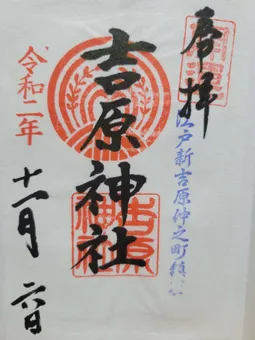 奉拝
江戸新吉原仲之町鎮座
吉原神社
吉原
神社
令和二年
十一月
六日